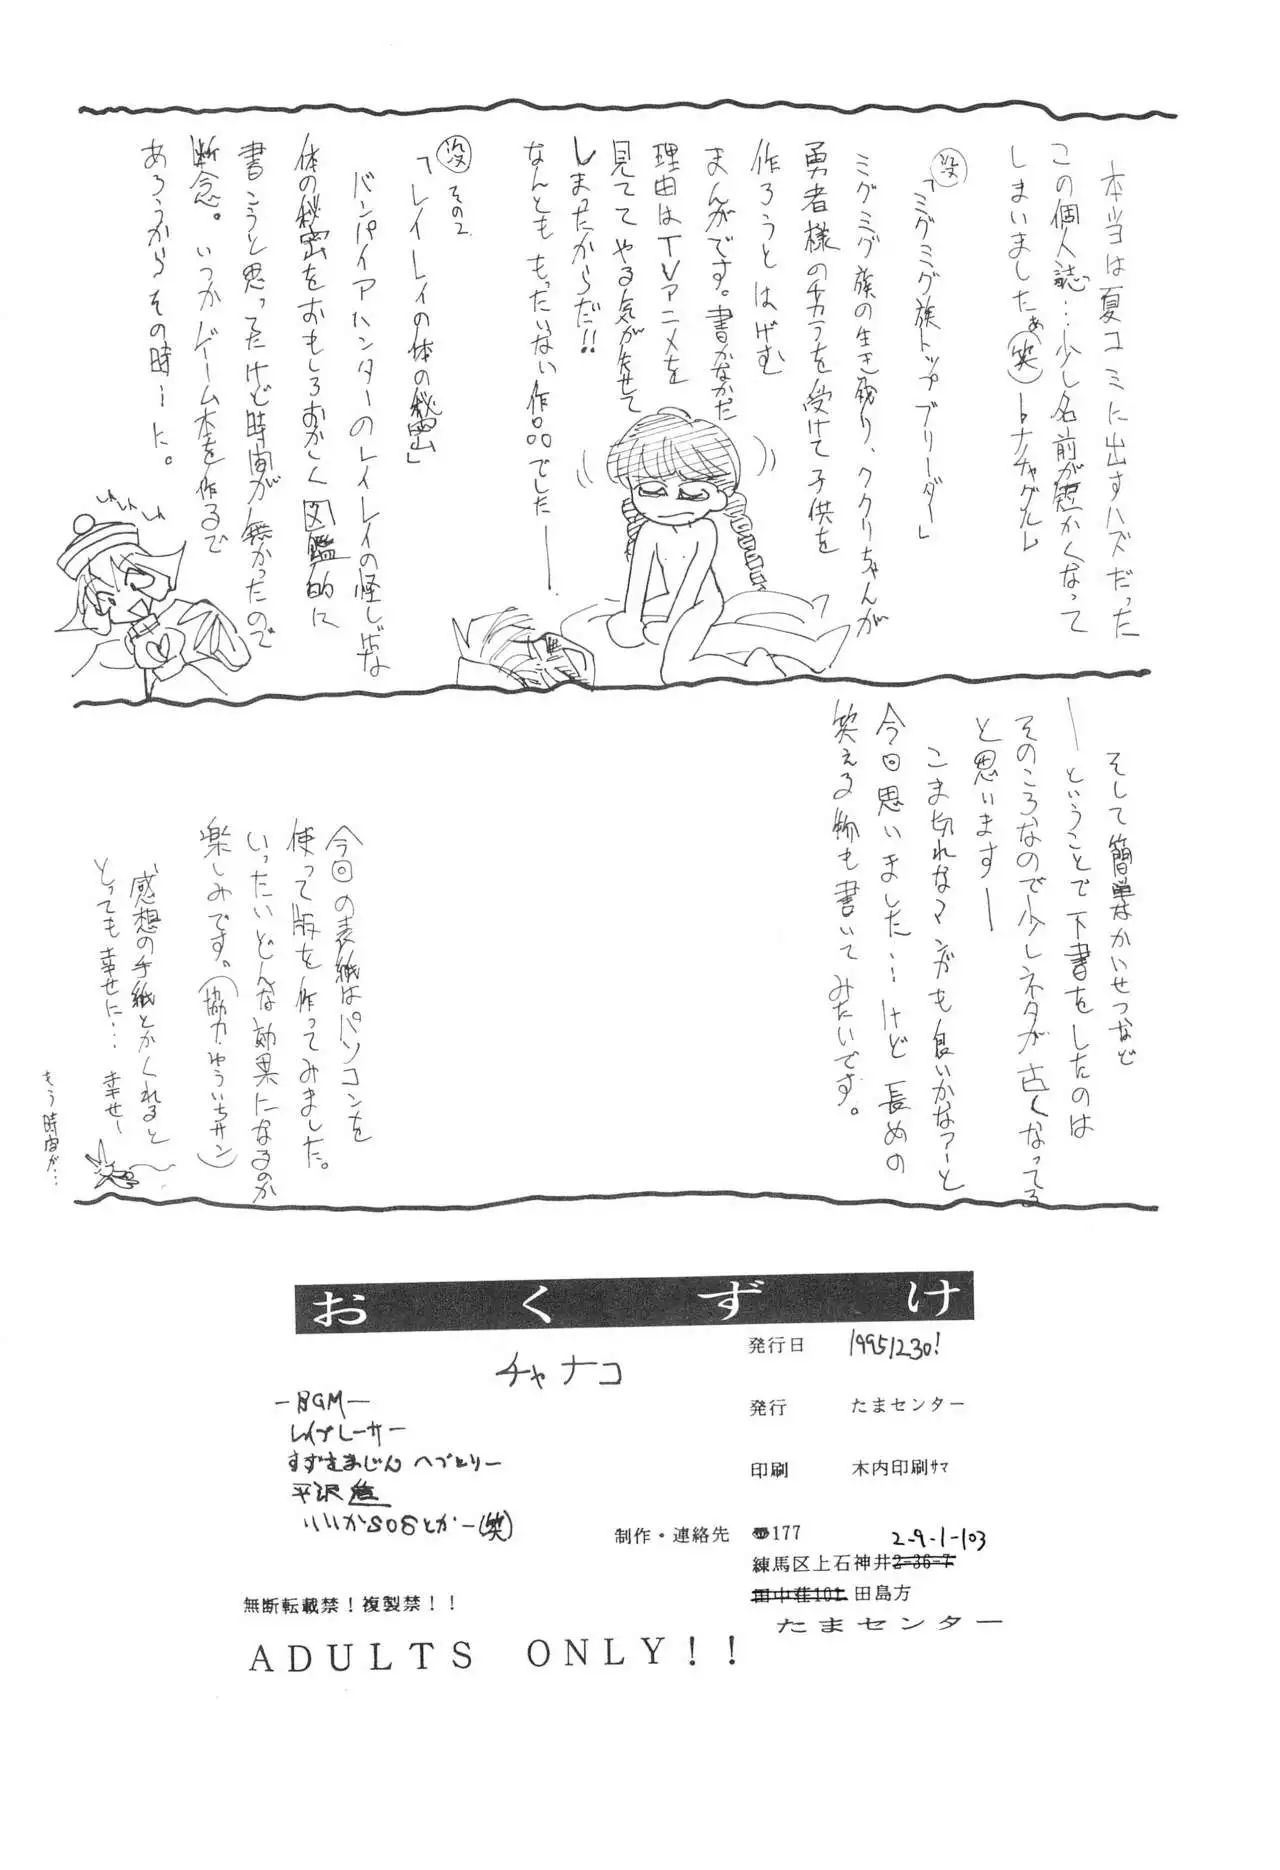 本当は夏コミに出すハズだった
この個人誌…少し名前が悪かくなって
しまいましたぁ(笑)
没
「ミグミグ族トップブリーダー」
ミグミグ族の生き残り、ククリちゃんが
勇者様のチカラを受けて子供を
作ろうとはげむ
まんがです。書かなかった
理由はTVアニメを
見ててやる気が失せて
しまったからだ!!
なんとももったいない作品でしたー
没 その2
「レイレイの体の秘密」
バンパイアハンターのレイレイの怪しげな
体の秘密をおもしろおかしく図鑑的に
書こうと思ってたけど時間が無かったので
断念。いつかゲーム本を作るで
あろうからその時ーに。
そして簡単なかいせつなど
ーということで下書をしたのは
そのころなので少しネタが古くなってる
と思いますー
こま切れなマンガも良いかなァーと
今回思いました…けど長めの
笑える物も書いてみたいです。
今回の表紙はパソコンを
使って版を作ってみました。
いったいどんな効果になるのか
楽しみです。(協力・ゆういちサン)
感想の手紙とかくれると
とっても幸せに…幸せー
もう時間が…
おくずけ
チャナコ
発行日 19951230!
発行 たまセンター
印刷 木内印刷ｻﾏ
制作・連絡先 〠177
練馬区上石神井2-36-7 2-9-1-103
田中荘101 田島方
たまセンター
ーBGMー
レイブレーサー
平沢進
いいかSOSとかー(笑)
無断転載禁！複製禁！！
ADULTS ONLY!!